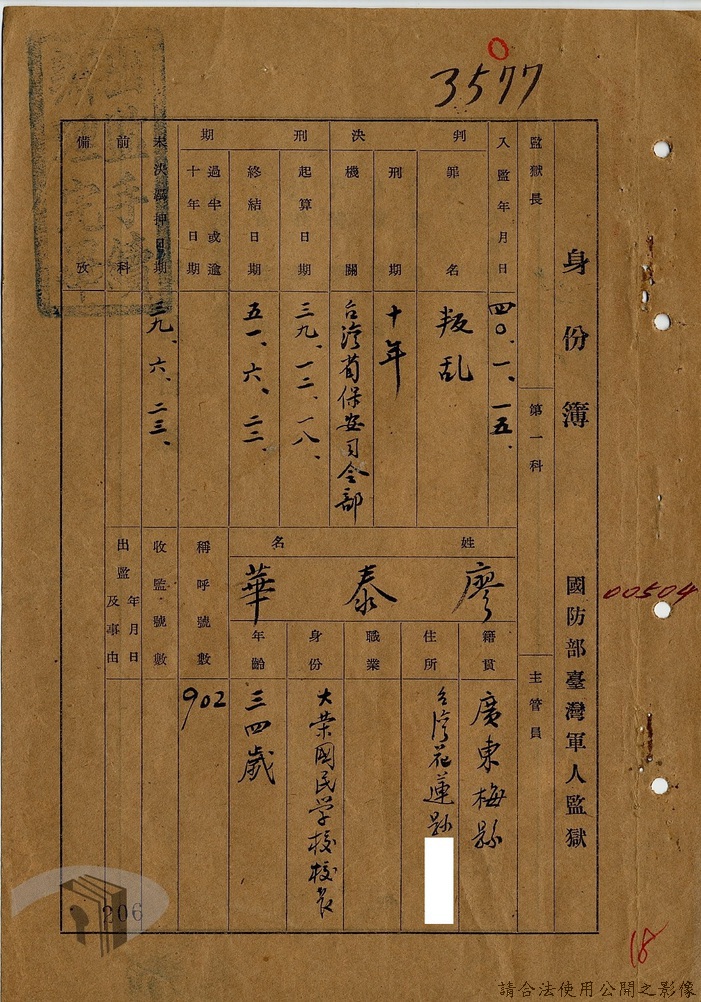 3577
身份簿
國防部臺灣軍人監獄
00504
監獄長
第一科
主管員
入監年月日
四〇、一、一五、
判決刑期
罪名
叛乱
刑期
十年
機關
台湾省保安司令部
起算日期
三九、一二、一八、
終結日期
五一、六、二二、
過半或逾十年日期
未決羈押日期
三九、六、二三、
前科
備攷
姓名
廖泰華
籍貫
廣東梅縣
住所
台湾花蓮縣
職業
身份
大荣國民学校校長
年齡
三四歲
稱呼號數
902
收監號數
出監年月日及事由
206
18
請合法使用公開之影像